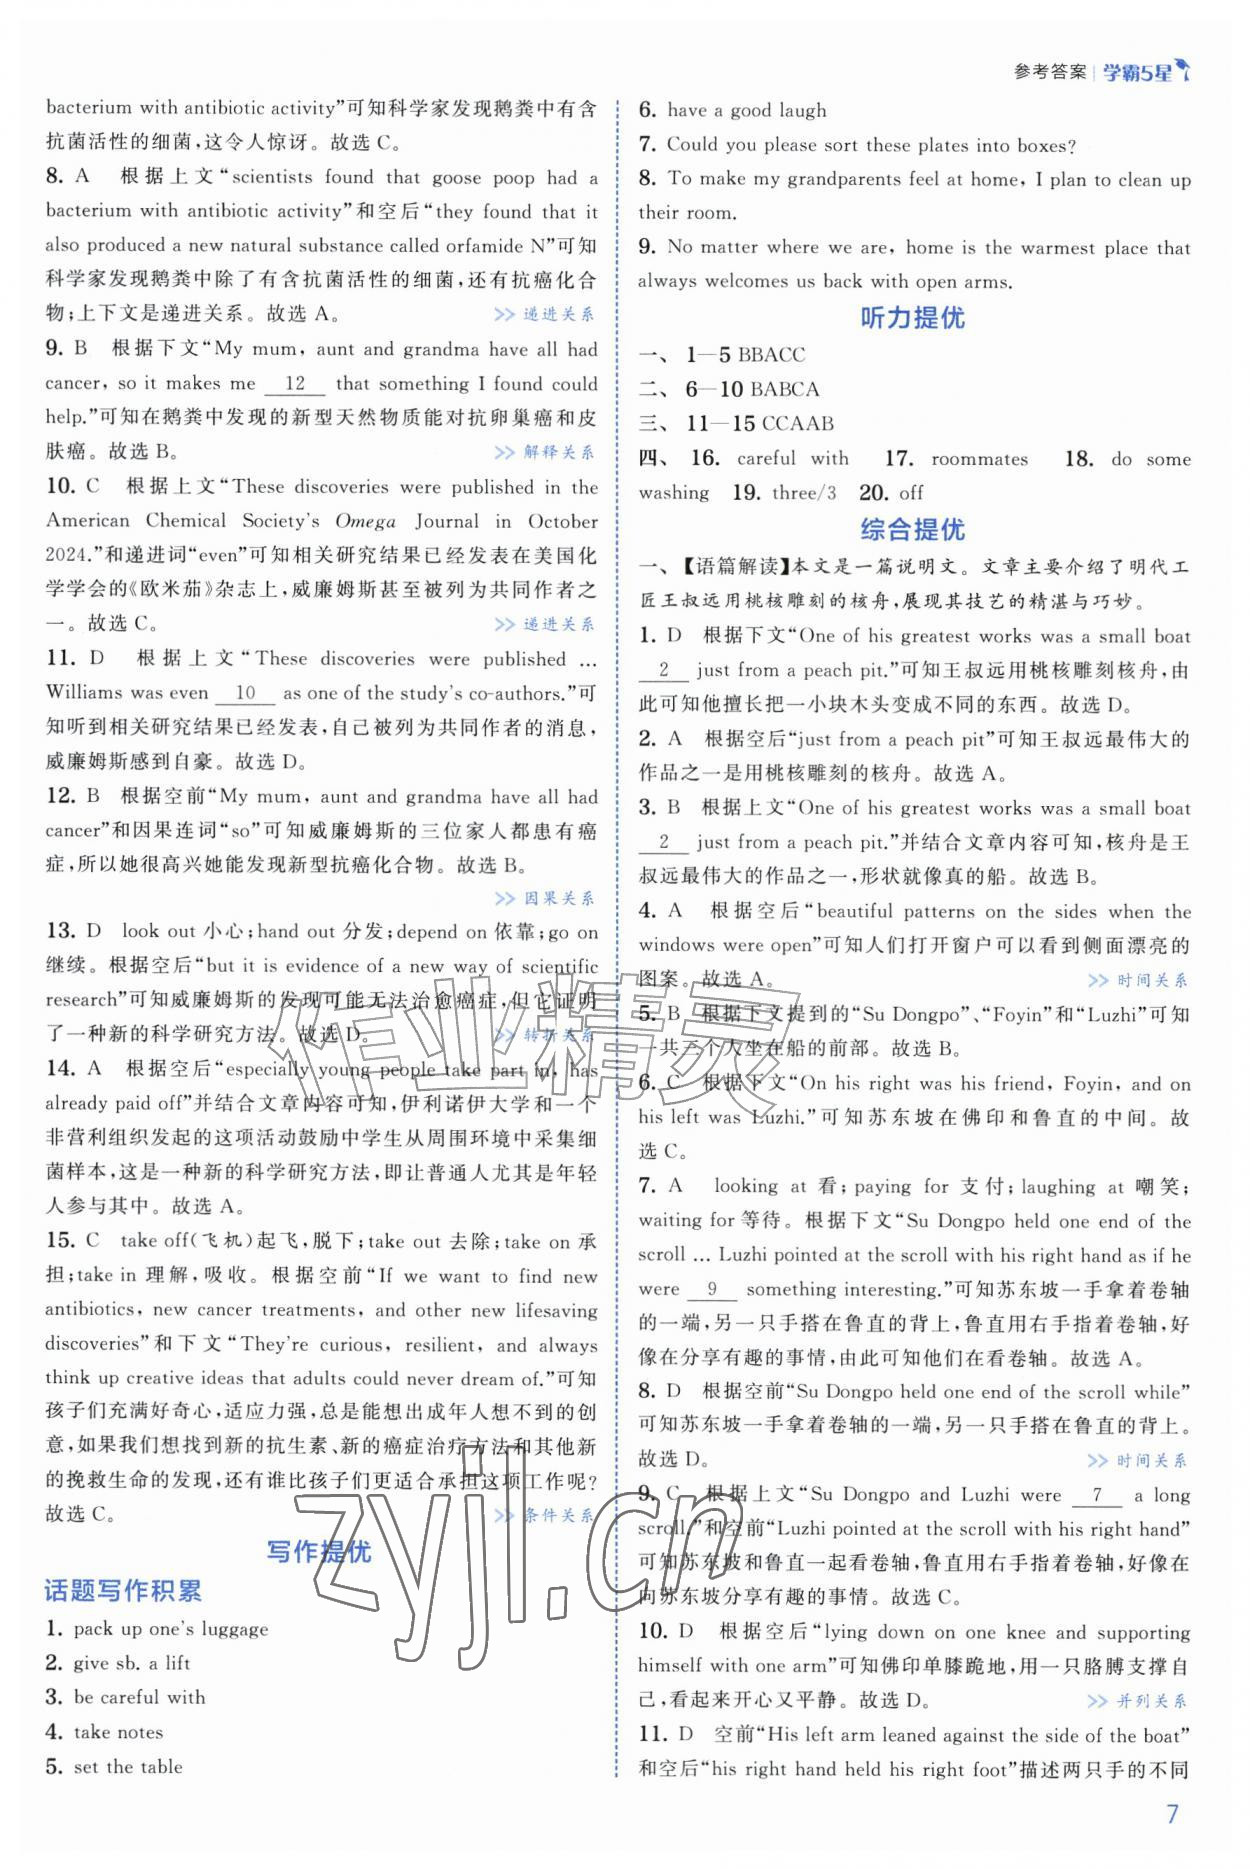 参考答案 学霸5星
bacterium with antibiotic activity”可知科学家发现鹅粪中有含
抗菌活性的细菌,这令人惊讶。故选 C。
8. A 根据上文“scientists found that goose poop had a
bacterium with antibiotic activity”和空后“they found that it
also produced a new natural substance called orfamide N”可知
科学家发现鹅粪中除了有含抗菌活性的细菌,还有抗癌化合
物;上下文是递进关系。故选 A。 >> 递进关系
9. B 根据下文“My mum, aunt and grandma have all had
cancer, so it makes me 12 that something I found could
help.”可知在鹅粪中发现的新型天然物质能对抗卵巢癌和皮
肤癌。故选 B。 >> 解释关系
10. C 根据上文“These discoveries were published in the
American Chemical Society's Omega Journal in October
2024.”和递进词“even”可知相关研究结果已经发表在美国化
学学会的《欧米茄》杂志上,威廉姆斯甚至被列为共同作者之
一。故选 C。 >> 递进关系
11. D 根据上文“These discoveries were published ...
Williams was even 10 as one of the study's co-authors.”可
知听到相关研究结果已经发表,自己被列为共同作者的消息,
威廉姆斯感到自豪。故选 D。
12. B 根据空前“My mum, aunt and grandma have all had
cancer”和因果连词“so”可知威廉姆斯的三位家人都患有癌
症,所以她很高兴她能发现新型抗癌化合物。故选 B。
>> 因果关系
13. D look out 小心;hand out 分发;depend on 依靠;go on
继续。根据空后“but it is evidence of a new way of scientific
research”可知威廉姆斯的发现可能无法治愈癌症,但它证明
了一种新的科学研究方法。故选 D。 >> 转折关系
14. A 根据空后“especially young people take part in, has
already paid off”并结合文章内容可知,伊利诺伊大学和一个
非营利组织发起的这项活动鼓励中学生从周围环境中采集细
菌样本,这是一种新的科学研究方法,即让普通人尤其是年轻
人参与其中。故选 A。
15. C take off(飞机)起飞,脱下;take out 去除;take on 承
担;take in 理解,吸收。根据空前“If we want to find new
antibiotics, new cancer treatments, and other new lifesaving
discoveries”和下文“They're curious, resilient, and always
think up creative ideas that adults could never dream of.”可知
孩子们充满好奇心,适应力强,总是能想出成年人想不到的创
意,如果我们想找到新的抗生素、新的癌症治疗方法和其他新
的挽救生命的发现,还有谁比孩子们更适合承担这项工作呢?
故选 C。 >> 条件关系
写作提优
话题写作积累
1. pack up one's luggage
2. give sb. a lift
3. be careful with
4. take notes
5. set the table
6. have a good laugh
7. Could you please sort these plates into boxes?
8. To make my grandparents feel at home, I plan to clean up
their room.
9. No matter where we are, home is the warmest place that
always welcomes us back with open arms.
听力提优
一、 1—5 BBACC
二、 6—10 BABCA
三、 11—15 CCAAB
四、 16. careful with 17. roommates 18. do some
washing 19. three/3 20. off
综合提优
一、【语篇解读】本文是一篇说明文。文章主要介绍了明代工
匠王叔远用桃核雕刻的核舟,展现其技艺的精湛与巧妙。
1. D 根据下文“One of his greatest works was a small boat
2 just from a peach pit.”可知王叔远用桃核雕刻核舟,由
此可知他擅长把一小块木头变成不同的东西。故选 D。
2. A 根据空后“just from a peach pit”可知王叔远最伟大的
作品之一是用桃核雕刻的核舟。故选 A。
3. B 根据上文“One of his greatest works was a small boat
2 just from a peach pit.”并结合文章内容可知,核舟是王
叔远最伟大的作品之一,形状就像真的船。故选 B。
4. A 根据空后“beautiful patterns on the sides when the
windows were open”可知人们打开窗户可以看到侧面漂亮的
图案。故选 A。 >> 时间关系
5. B 根据下文提到的“Su Dongpo”、“Foyin”和“Luzhi”可知
一共三个人坐在船的前部。故选 B。
6. C 根据下文“On his right was his friend, Foyin, and on
his left was Luzhi.”可知苏东坡在佛印和鲁直的中间。故
选 C。
7. A looking at 看;paying for 支付;laughing at 嘲笑;
waiting for 等待。根据下文“Su Dongpo held one end of the
scroll ... Luzhi pointed at the scroll with his right hand as if he
were 9 something interesting.”可知苏东坡一手拿着卷轴
的一端,另一只手搭在鲁直的背上,鲁直用右手指着卷轴,好
像在分享有趣的事情,由此可知他们在看卷轴。故选 A。
8. D 根据空前“Su Dongpo held one end of the scroll while”
可知苏东坡一手拿着卷轴的一端,另一只手搭在鲁直的背上。
故选 D。 >> 时间关系
9. C 根据上文“Su Dongpo and Luzhi were 7 a long
scroll.”和空前“Luzhi pointed at the scroll with his right hand”
可知苏东坡和鲁直一起看卷轴,鲁直用右手指着卷轴,好像在
向苏东坡分享有趣的事情。故选 C。
10. D 根据空后“lying down on one knee and supporting
himself with one arm”可知佛印单膝跪地,用一只胳膊支撑自
己,看起来开心又平静。故选 D。 >> 并列关系
11. D 空前“His left arm leaned against the side of the boat”
和空后“his right hand held his right foot”描述两只手的不同
作业精灵
zyjl.cn
7